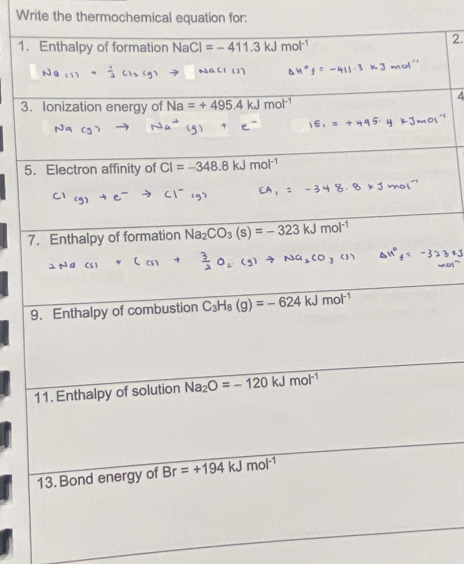 Write the thermochemical equation for:
1. Enthalpy of formation NaCl = – 411.3 kJ mol⁻¹
2.
Na (s) + ½ Cl₂ (g) → NaCl (s) ΔH°f = -411.3 kJ mol⁻¹
3. Ionization energy of Na = + 495.4 kJ mol⁻¹
4
Na (g) → Na⁺ (g) + e⁻ IE₁ = +495.4 kJmol⁻¹
5. Electron affinity of Cl = –348.8 kJ mol⁻¹
Cl (g) + e⁻ → Cl⁻ (g) EA₁ = -348.8 kJ mol⁻¹
7. Enthalpy of formation Na₂CO₃ (s) = – 323 kJ mol⁻¹
2Na (s) + C (s) + 3/2 O₂ (g) → Na₂CO₃ (s) ΔH°f = -323 kJ
mol⁻¹
9. Enthalpy of combustion C₃H₈ (g) = – 624 kJ mol⁻¹
11. Enthalpy of solution Na₂O = – 120 kJ mol⁻¹
13. Bond energy of Br = +194 kJ mol⁻¹